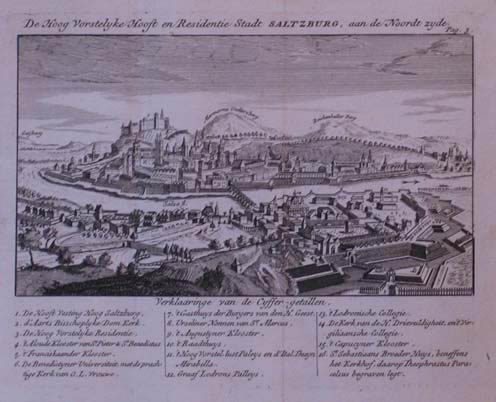 De Hoog Vorstelyke Hooft en Residentie Stadt SALTZBURG, aan de Noordt zyde.
Pag. 3
Saltz fl.
Verklaaringe van de Cyffer-getallen.
1. De Hooft Vesting Hoog Saltzburg.
2. d'Aarts Bisschoplyke Dom Kerk.
3. De Hoog Vorstelyke Residentie.
4. t Aloude Klooster van St. Pieter & St. Benedictus
5. 't Franciskaander Klooster.
6. De Benedictyner Universiteit, met de prachtige Kerk van O. L. Vrouwe.
7. 't Gasthuys der Burgers van den H. Geest.
8. Urseliner Nonnen van St. Marcus.
9. 't Augustyner Klooster.
10. 't Raadthuys
11. 't Hoog Vorstel. lust Paleys en d'Bal
Mirabella.
12. Graaf Lodrons Palleys.
13. 't Lodronische Collegie.
14. De Kerk van de H. Drievuldigheit, en't Virgiliaansche Collegie.
15. 't Capucyner Klooster.
16. St. Sebastiaans Broeder Huys, beneffens
het Kerkhof, daarop Theophrastus Para
celsus begraven legt.